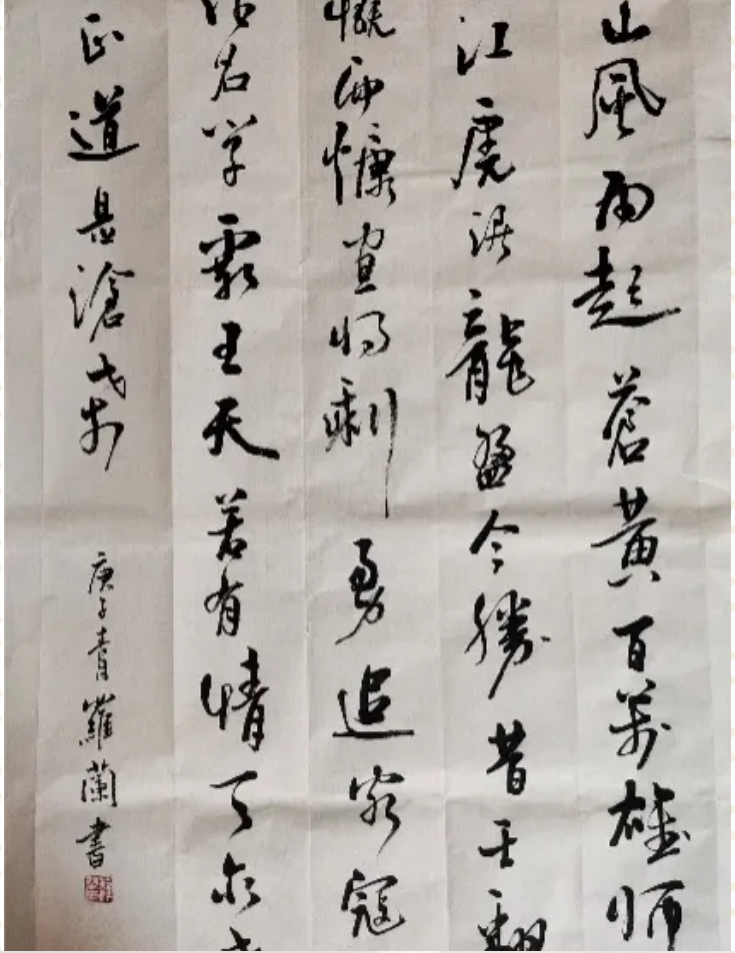 山風雨起蒼黄百萬雄师
江虎踞龍盘今勝昔天翻
慨而慷宜将剩勇追穷寇
沽名学霸王天若有情天亦
正道是滄桑
庚子青羅蘭書